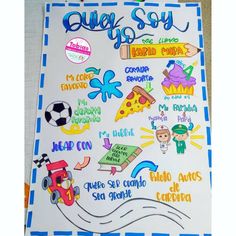 Quien Soy
yo
Me llamo
KARLA MAIRA
Mi color
favorito
Comida
favorita
Mi deporte
favorito
Mi Familia
Mamá
Papá
JUGAR CON
Mi Hobbie
Leer
Quiero ser cuando
sea grande
Piloto Autos
de
Carrera